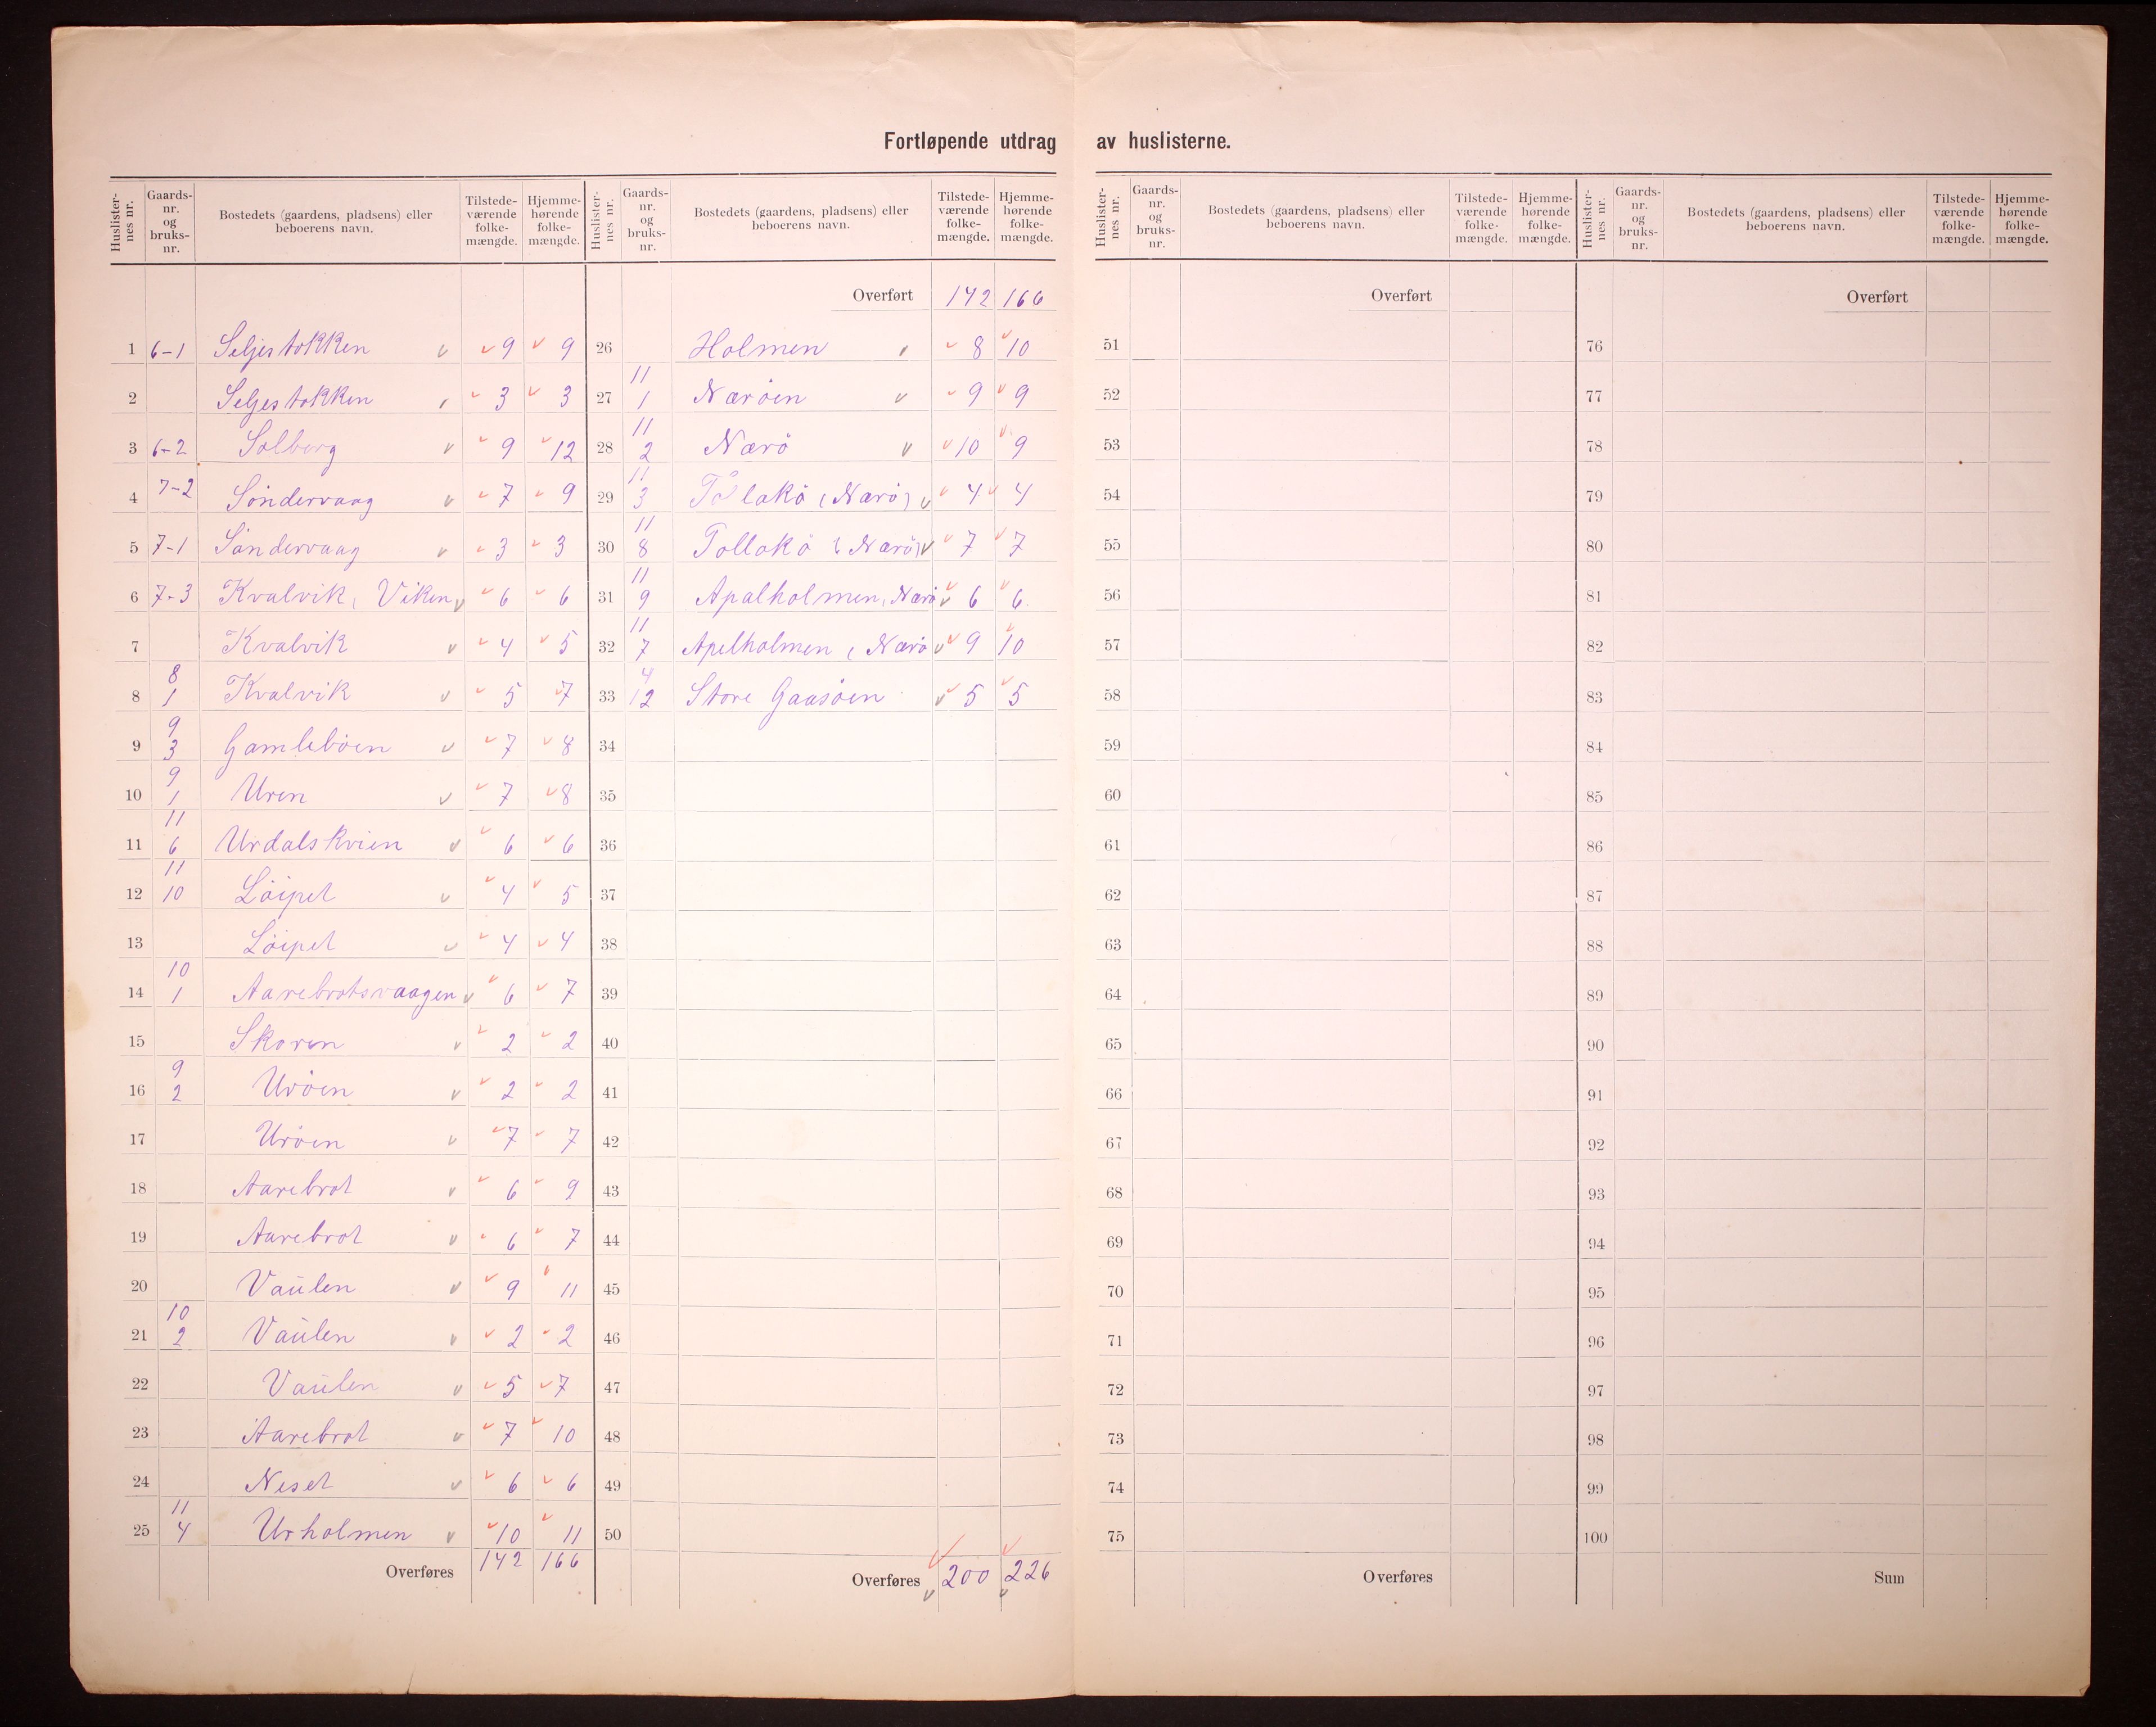 Fortløpende utdrag av huslisterne.
Huslister-nes nr. Gaards-nr. og bruks-nr. Bostedets (gaardens, pladsens) eller beboerens navn. Tilstede-værende folke-mængde. Hjemme-hørende folke-mængde.
1 6-1 Seljestokken v 9 9
2 Seljestokken v 3 3
3 6-2 Solberg v 9 12
4 7-2 Söndervaag v 7 9
5 7-1 Söndervaag v 3 3
6 7-3 Kvalvik, Viken v 6 6
7 Kvalvik v 4 5
8 8 1 Kvalvik v 5 7
9 9 3 Gamleböen v 7 8
10 9 1 Uren v 7 8
11 11 6 Urdalskvien v 6 6
12 11 10 Löipet v 4 5
13 Löipet v 4 4
14 10 1 Aarebrotsvaagen v 6 7
15 Skoren v 2 2
16 9 2 Uröen v 2 2
17 Uröen v 7 7
18 Aarebrot v 6 9
19 Aarebrot v 6 7
20 Vaülen v 9 11
21 10 2 Vaülen v 2 2
22 Vaülen v 5 7
23 Aarebrot v 7 10
24 Neset v 6 6
25 11 4 Urholmen v 10 11
Overføres 142 166
Huslister-nes nr. Gaards-nr. og bruks-nr. Bostedets (gaardens, pladsens) eller beboerens navn. Tilstede-værende folke-mængde. Hjemme-hørende folke-mængde.
Overført 142 166
26 Holmen v 8 10
27 11 1 Næröen v 9 9
28 11 2 Nærö v 10 9
29 11 3 (Nærö) v 4 4
30 11 8 Tollakö (Nærö) v 7 7
31 11 9 Apalholmen, Nærö v 6 6
32 11 7 Apelholmen (Nærö v 9 10
33 4 12 Store Gaasöen v 5 5
34
35
36
37
38
39
40
41
42
43
44
45
46
47
48
49
50
Overføres 200 226
Huslister-nes nr. Gaards-nr. og bruks-nr. Bostedets (gaardens, pladsens) eller beboerens navn. Tilstede-værende folke-mængde. Hjemme-hørende folke-mængde.
Overført
51
52
53
54
55
56
57
58
59
60
61
62
63
64
65
66
67
68
69
70
71
72
73
74
75
Overføres
Huslister-nes nr. Gaards-nr. og bruks-nr. Bostedets (gaardens, pladsens) eller beboerens navn. Tilstede-værende folke-mængde. Hjemme-hørende folke-mængde.
Overført
76
77
78
79
80
81
82
83
84
85
86
87
88
89
90
91
92
93
94
95
96
97
98
99
100
Sum